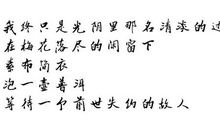 我终只是光阴里那名清淡的过
在梅花落尽的闲留下
素布简衣
泡一壶普洱
等待一个前世失约的故人